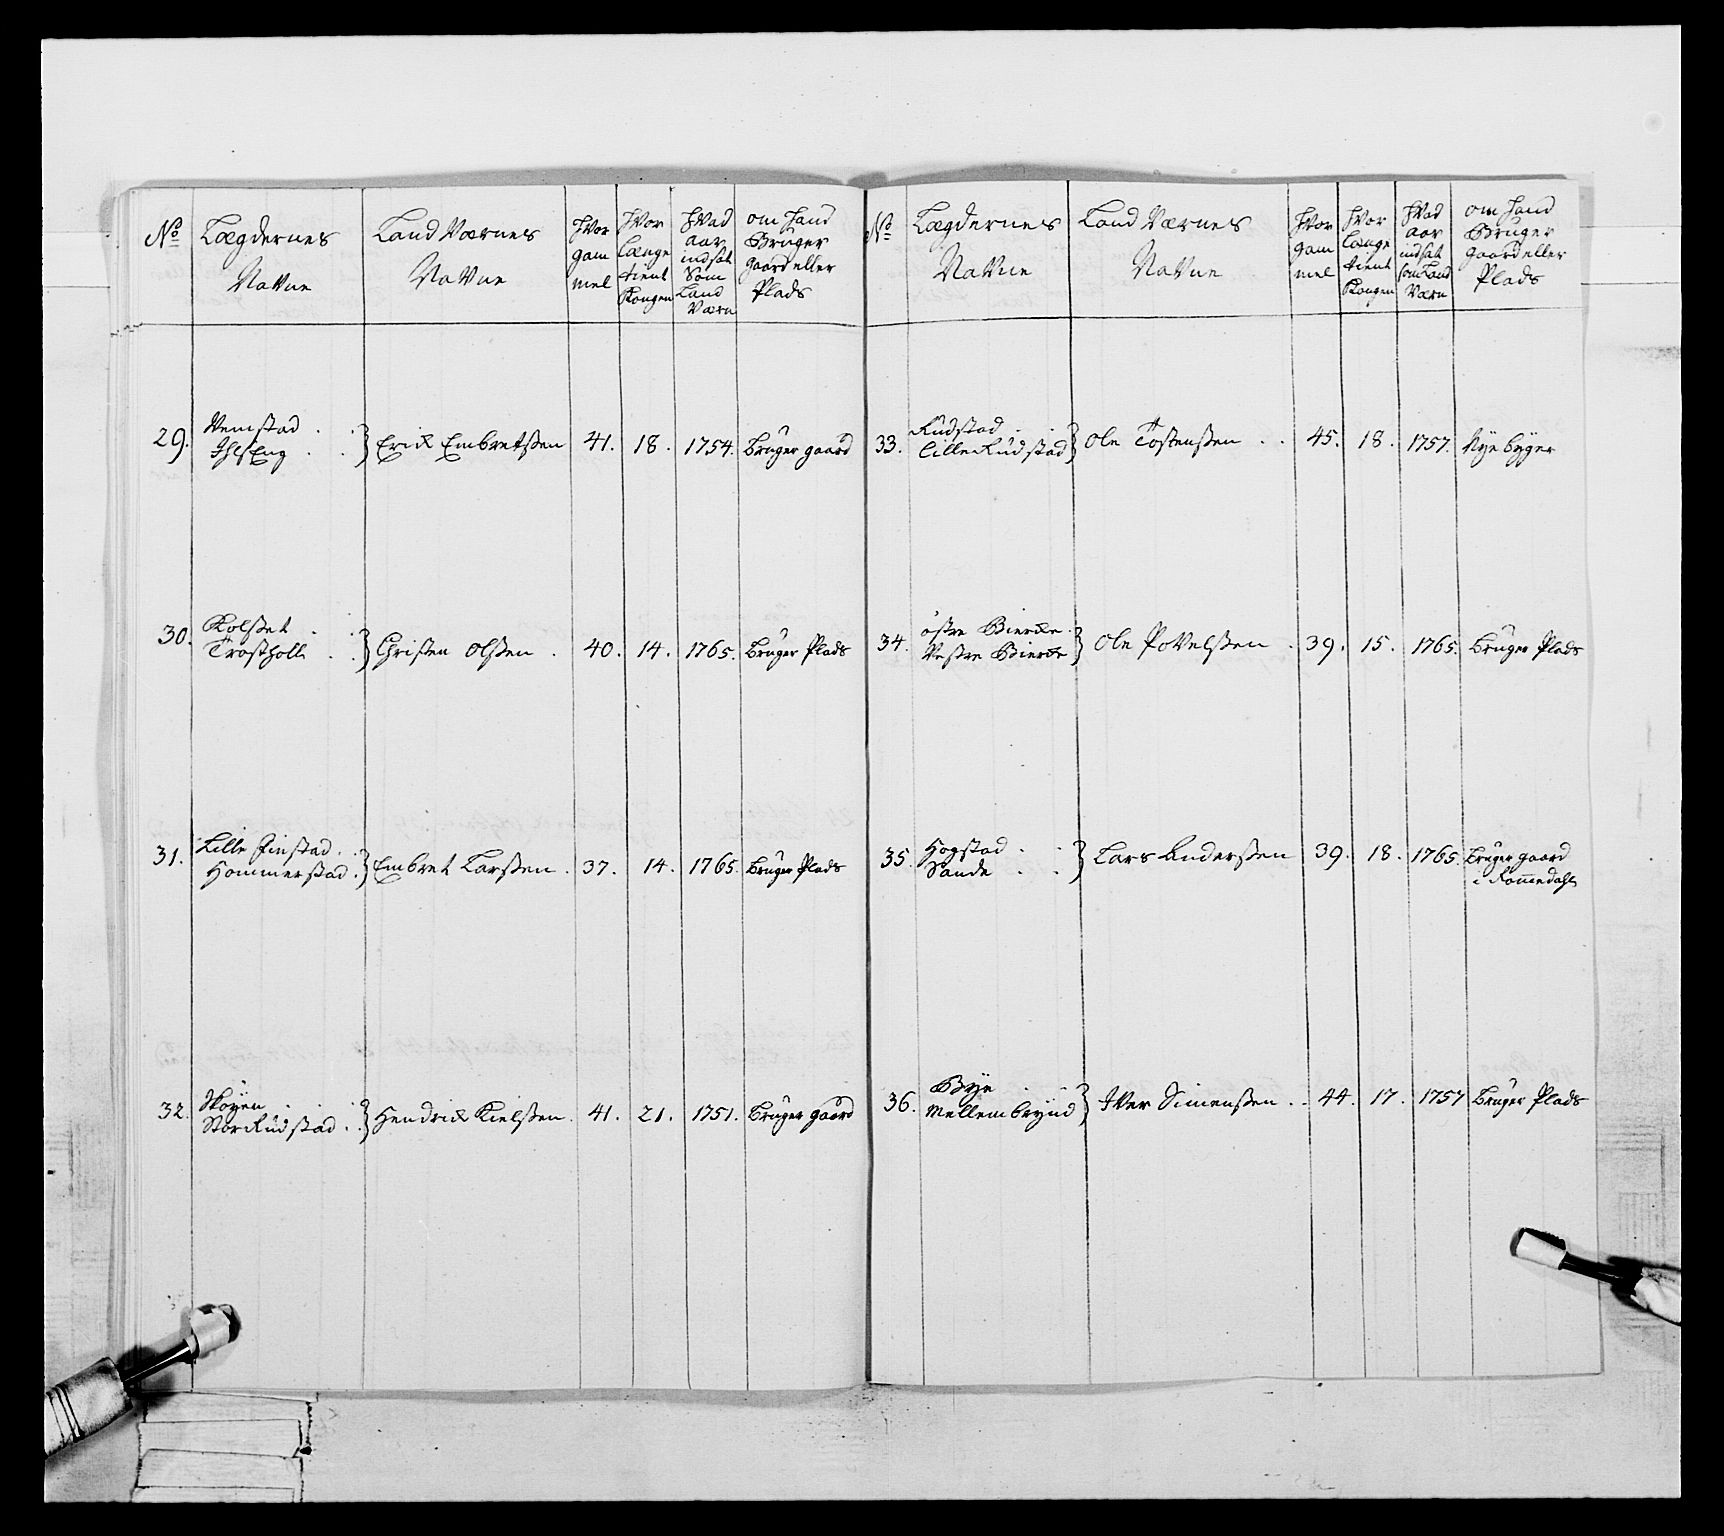 No
Lægdernes
Navne
Land Værnes
Navne
Hvor
gam
mel
Hvor
Længe
tient
Kongen
Hvad
aar
indsat
Som
Land
Værn
om hand
Bruger
gaard eller
Plads
29. Vemstad . . } Erick Embretsen 41. 18. 1754. bruger gaard
30. Kolset . .
Trostholl . . } Christen Olsen . 40. 14. 1765. bruger Plads
31. Lille Finstad . .
Hommerstad . } Embret Larsen . 37. 14. 1765. bruger Plads
32. Skøyen . .
Stor Rudstad . . } Hendrick Kielsen . 41. 21. 1751. bruger gaard
No
Lægdernes
Navne
Land Værnes
Navne
Hvor
gam
mel
Hvor
Længe
tient
Kongen
Hvad
aar
indsat
som Land
Værn
om hand
Bruger
Gaard eller
Plads
33. Rudstad . .
Lille Rudstad } Ole Tostensen . . 45. 18. 1757. Nye byger
34. østre Biercke .
Vestre Biercke } Ole Povelsen . 39. 15. 1765. bruger Plads
35. Hogstad . .
Sande . . } Lars Andersen 39. 18. 1765. bruger gaard
i Romedahl
36. Bye . .
Mellem brynd } Iver Simensen . . 44. 17. 1757 bruger Plads